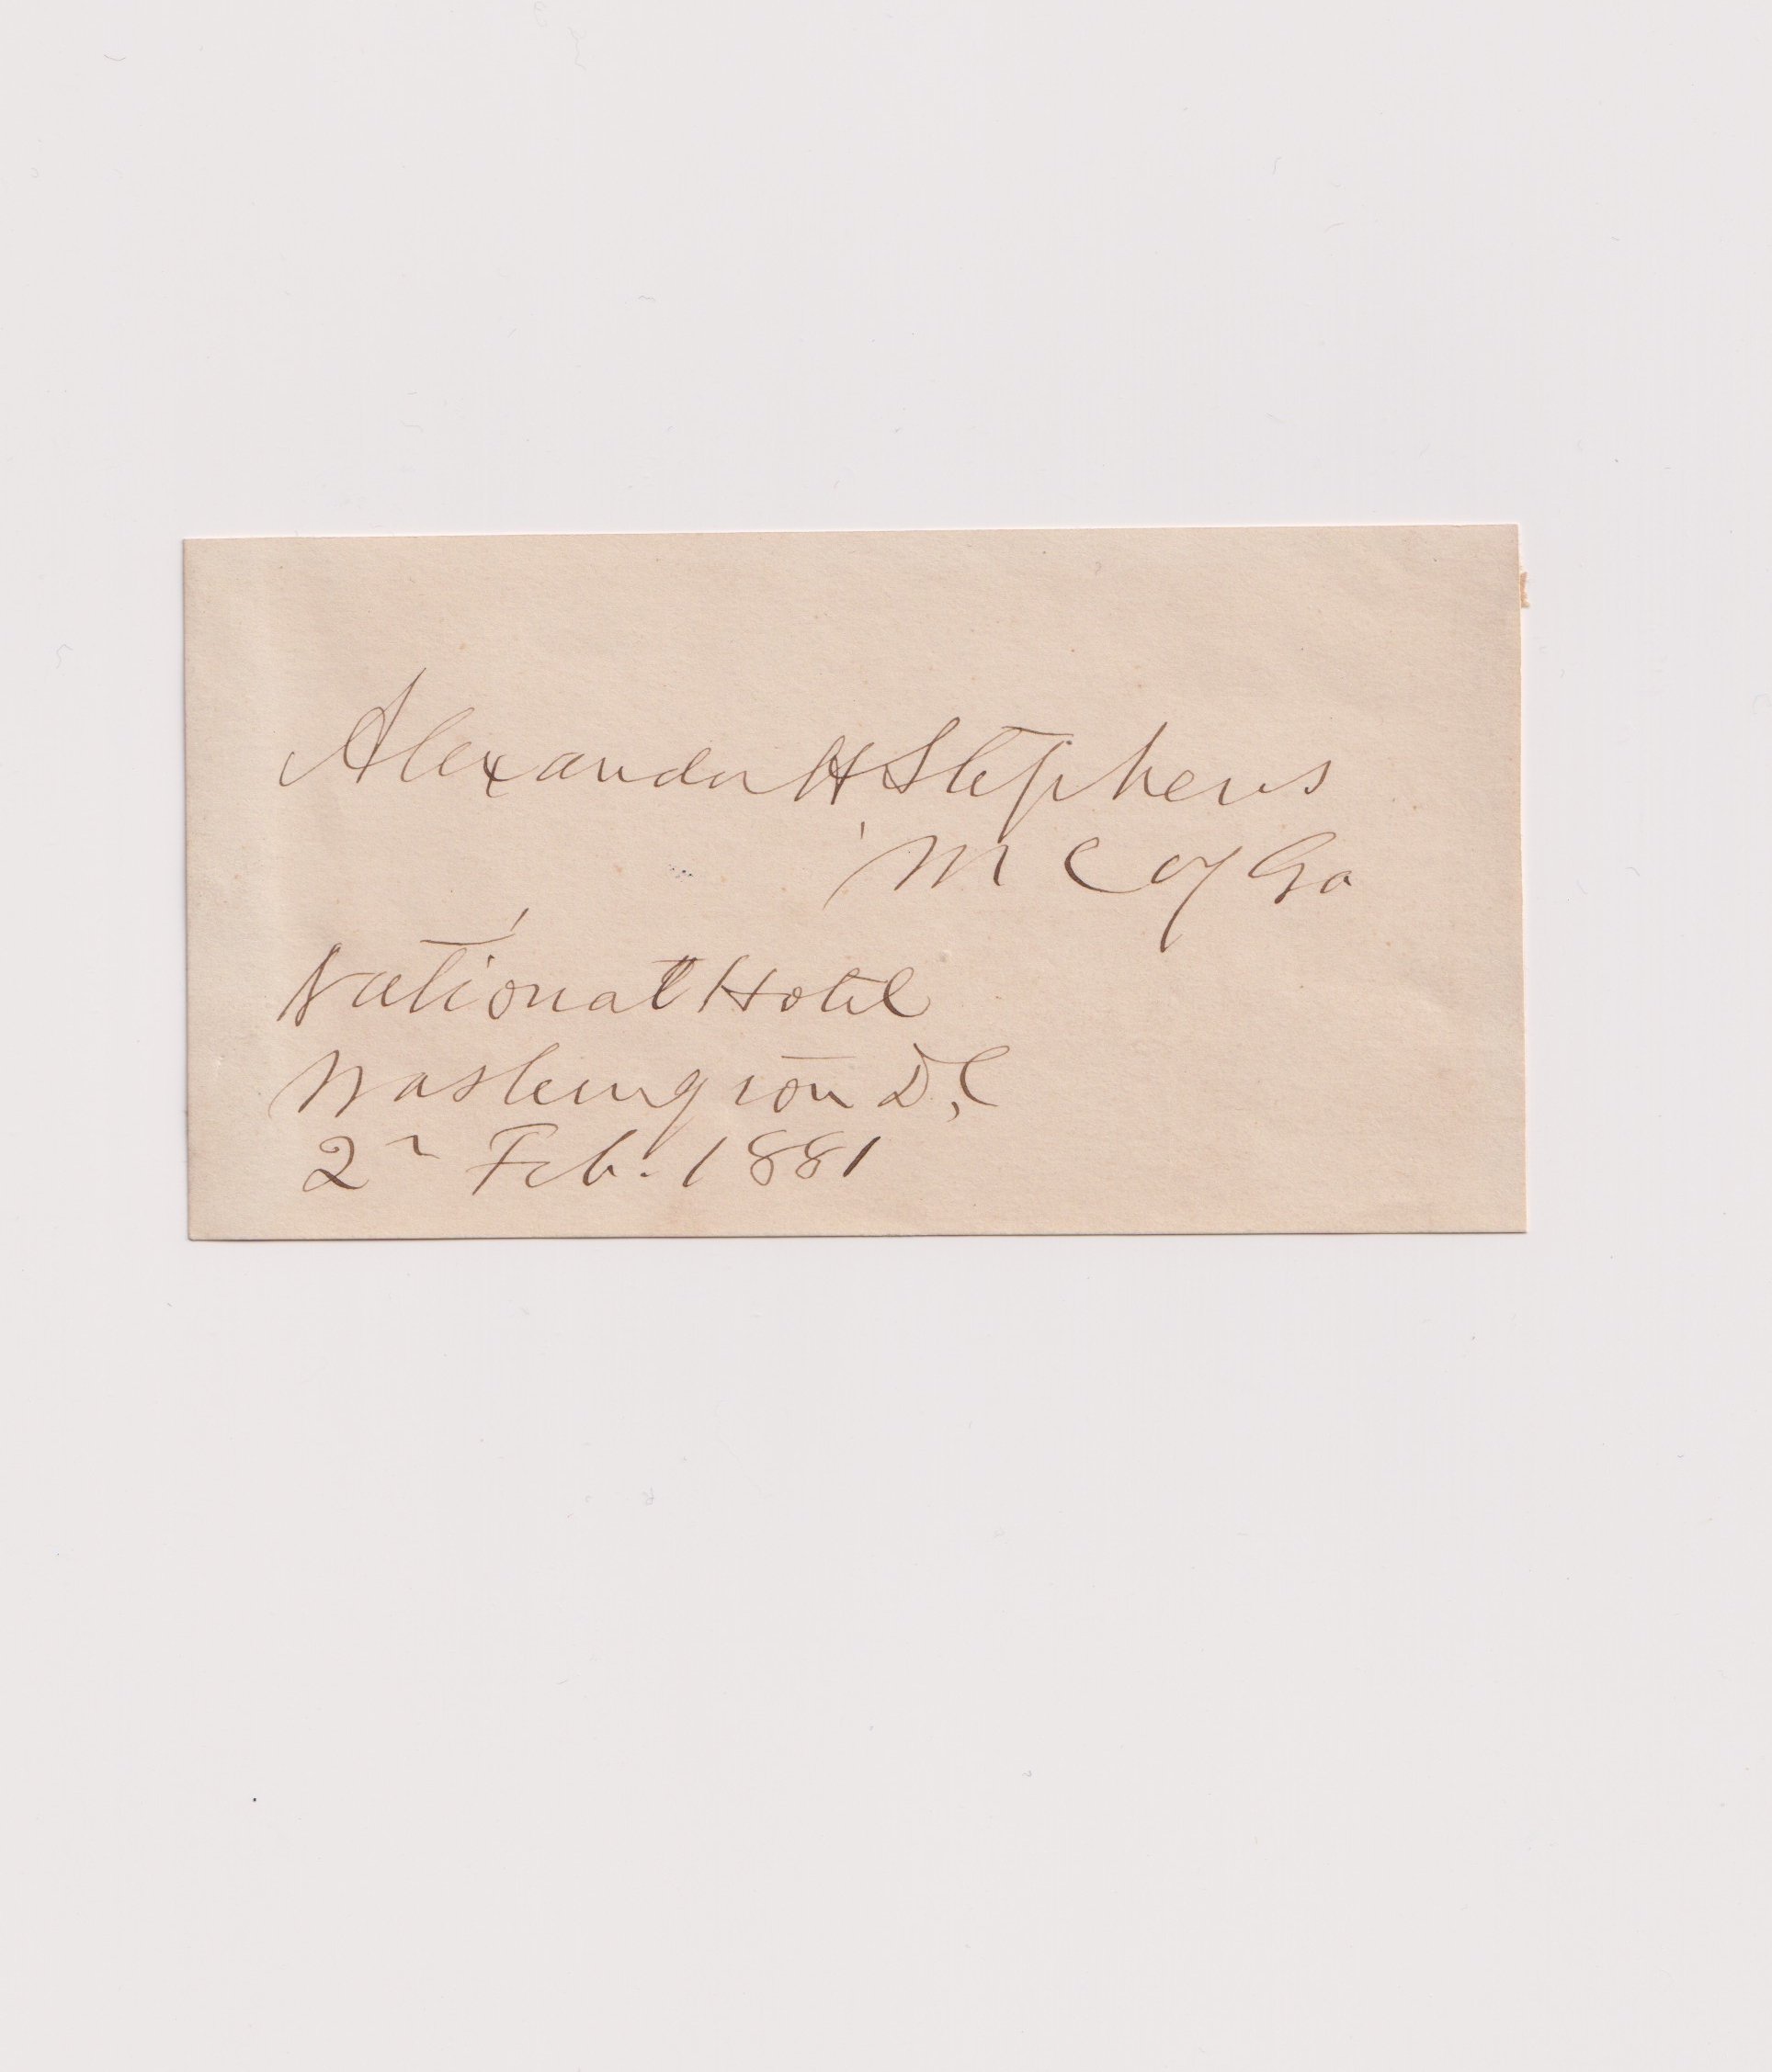 Alexander H Stephens
M C of Ga
National Hotel
Washington D.C
2n Feb. 1881